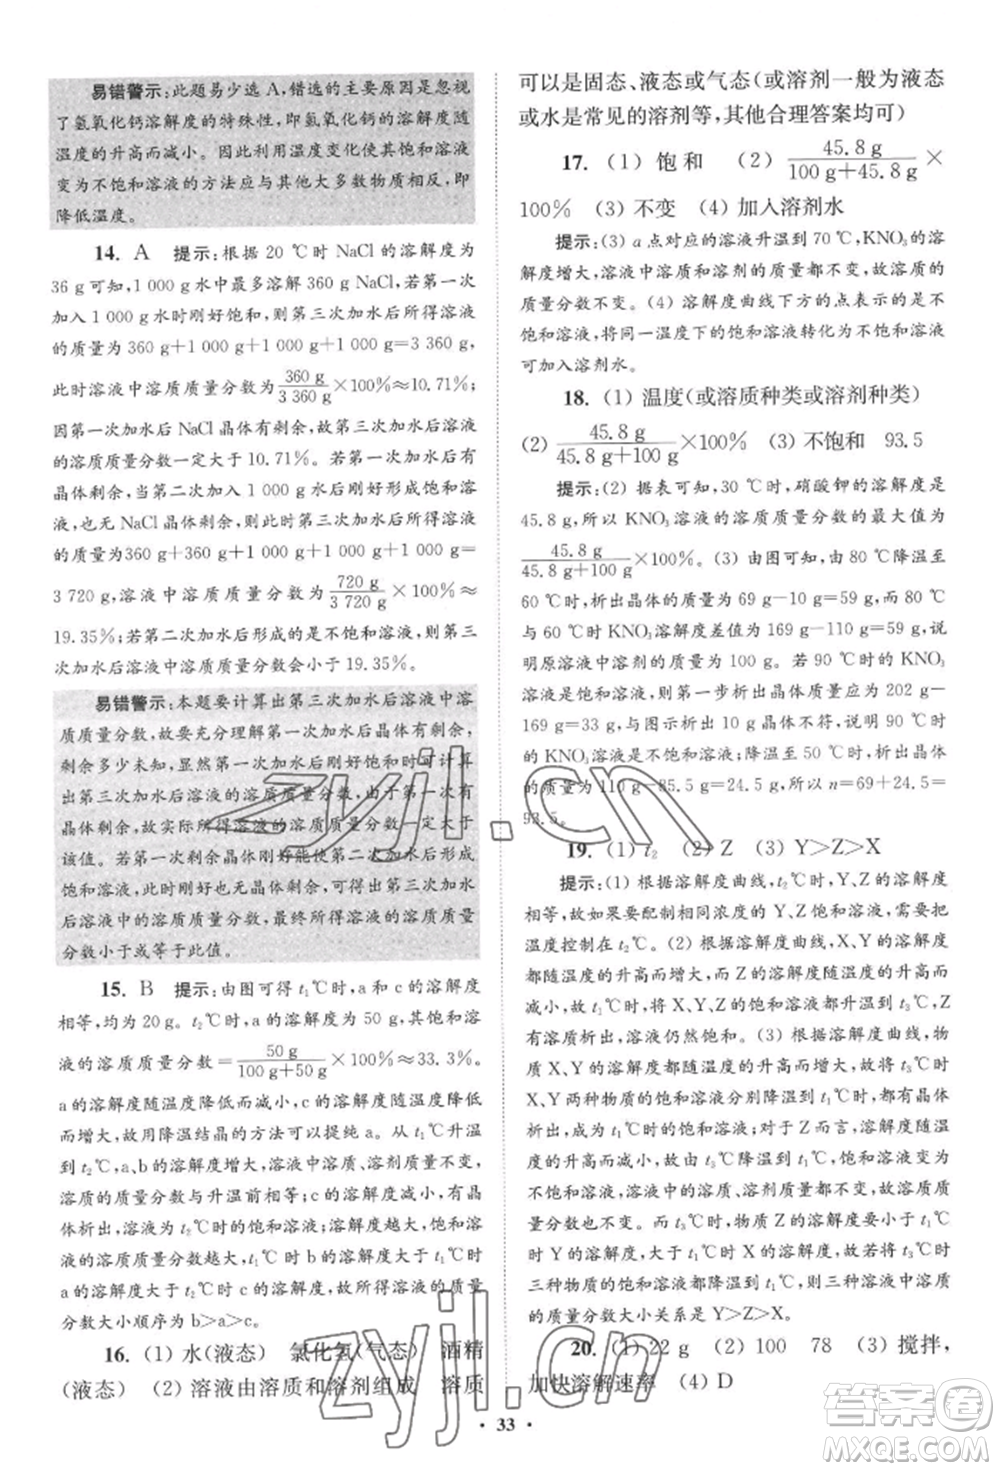 易错警示:此题易少选 A,错选的主要原因是忽视
了氢氧化钙溶解度的特殊性,即氢氧化钙的溶解度随
温度的升高而减小。因此利用温度变化使其饱和溶液
变为不饱和溶液的方法应与其他大多数物质相反,即
降低温度。
14. A 提示:根据 20 ℃时 NaCl 的溶解度为
36 g 可知,1 000 g 水中最多溶解 360 g NaCl。若第一次
加入 1 000 g 水时刚好饱和,则第三次加水后所得溶液
的质量为 360 g+1 000 g+1 000 g+1 000 g=3 360 g,
此时溶液中溶质质量分数为 360 g/3 360 g ×100%≈10.71%;
因第一次加水后 NaCl 晶体有剩余,则第三次加水后
的溶质质量分数一定大于 10.71%。若第二次加水后有
晶体剩余,当第二次加入 1 000 g 水后刚好形成饱和溶
液,也无 NaCl 晶体剩余,则第三次加水后所得溶液的质
量为360 g+360 g+1 000 g+1 000 g+1 000 g=
3 720 g,溶液中溶质质量分数为 720 g/3 720 g ×100%≈
19.35%;若第二次加水后形成的是不饱和溶液,则第三
次加水后溶液中溶质质量分数会小于 19.35%。
易错警示:本题要计算出第三次加水后溶液中溶
质质量分数,故要充分理解第一次加水后晶体有剩余,
剩余多少未知,显然第一次加水后刚好饱和时可计算
出第三次加水后溶液的溶质质量分数,但因第一次有
晶体剩余,故实际所得溶液的溶质质量分数一定大于
该值。若第二次剩余晶体刚好能使第二次加水后形成
饱和溶液,此时刚好也无晶体剩余,也可计算第三次加
水后溶液中的溶质质量分数,最终所得溶液的溶质质量
分数小于或等于此值。
15. B 提示:由图可得 t₁℃时,a 和 c 的溶解度
相等,均为 20 g。t₂℃时,a 的溶解度为 50 g,其饱和溶
液的溶质质量分数= 50 g/100 g+50 g ×100%≈33.3%。
a 的溶解度随温度降低而减小,c 的溶解度随温度降低
而增大,故用降温结晶的方法可以提纯 a。从 t₁℃升温
到 t₂℃,a、b 的溶解度增大,溶液组成不变,故溶液中溶
质的质量分数与升温前相等;c 的溶解度减小,有晶
体析出,溶液为 t₂℃时的饱和溶液。溶解度越大,饱和
溶液的溶质质量分数越大,t₁℃时 b 的溶解度大于 a,
a 的溶解度大于 t₂℃时 c 的溶解度,故最终所得溶液溶质质
量分数大小顺序为 b>a>c。
16. (1) 水(液态) 氯化氢(气态) 酒精
(液态) (2) 溶液由溶质和溶剂组成 溶质
可以是固态、液态或气态(或溶剂一般为液态
或水是常见的溶剂等,其他合理答案均可)
17. (1) 饱和 (2) 45.8 g/100 g+45.8 g ×
100% (3) 不变 (4) 加入溶剂水
提示:(3) a 点对应的溶液升温到 70 ℃,KNO₃的溶
解度增大,溶液中溶质和溶剂的质量都不变,故溶质的质
量分数不变。(4) 溶解度曲线下方的点表示的是不
饱和溶液,将同一温度下的饱和溶液转化为不饱和溶液
可加入溶剂水。
18. (1) 温度(或溶质种类或溶剂种类)
(2) 45.8 g/45.8 g+100 g ×100% (3) 不饱和 93.5
提示:(2) 据表可知,30 ℃时,硝酸钾的溶解度是
45.8 g,所以 KNO₃溶液的溶质质量分数的最大值为
45.8 g/45.8 g+100 g ×100%。(3) 由图可知,由 80 ℃降温至
60 ℃时,析出晶体的质量为 69 g-10 g=59 g,80 ℃
与 60 ℃时 KNO₃溶解度差值为 169 g-110 g=59 g,说
明原溶液中水的质量为 100 g。若 90 ℃时 KNO₃
溶液是饱和溶液,则第一步析出晶体质量应为 202 g-
169 g=33 g,与图示析出 10 g 晶体不符,说明 90 ℃时
的 KNO₃溶液是不饱和溶液;降温至 50 ℃时,析出晶体
的质量为 110 g-85.5 g=24.5 g,所以 n=69+24.5=
93.5。
19. (1) t₂ (2) Z (3) Y>Z>X
提示:(1) 根据溶解度曲线,t₂℃时,Y、Z 的溶解度
相等,故如果要配制相同浓度的 Y、Z 饱和溶液,需要将
温度控制在 t₂℃。(2) 根据溶解度曲线,X、Y 的溶解
度都随温度的升高而增大,而 Z 随温度的升高而
减小,故若将 X、Y、Z 的饱和溶液升温,则只有 Z 会
有溶质析出,溶液仍然饱和。(3) 根据溶解度曲线,X、
Y 的溶解度随温度的升高而增大,故将 t₃℃时的
X、Y 两种物质的饱和溶液分别降温到 t₁℃时,有晶体析
出,成为 t₁℃时的饱和溶液;对于 Z 而言,Z 的溶解度随
温度的升高而减小,故由 t₃℃降温到 t₁℃时,饱和溶液变为
不饱和溶液,溶液中溶质的质量、溶剂质量都不变,溶质的
质量分数也不变。由题图可知,t₁℃时 Y 的溶解度大于 t₃
℃时 Z 的溶解度,大于 t₁℃时 X 的溶解度,故 t₃℃时
三种物质的饱和溶液都降温到 t₁℃时,则三种溶液中溶质
的质量分数大小关系是 Y>Z>X。
20. (1) 22 g (2) 100 78 (3) 搅拌,
加快溶解速率 (4) D
· 33 ·
zyjl.cn
zyjl.cn
答案圈
MXQE.COM